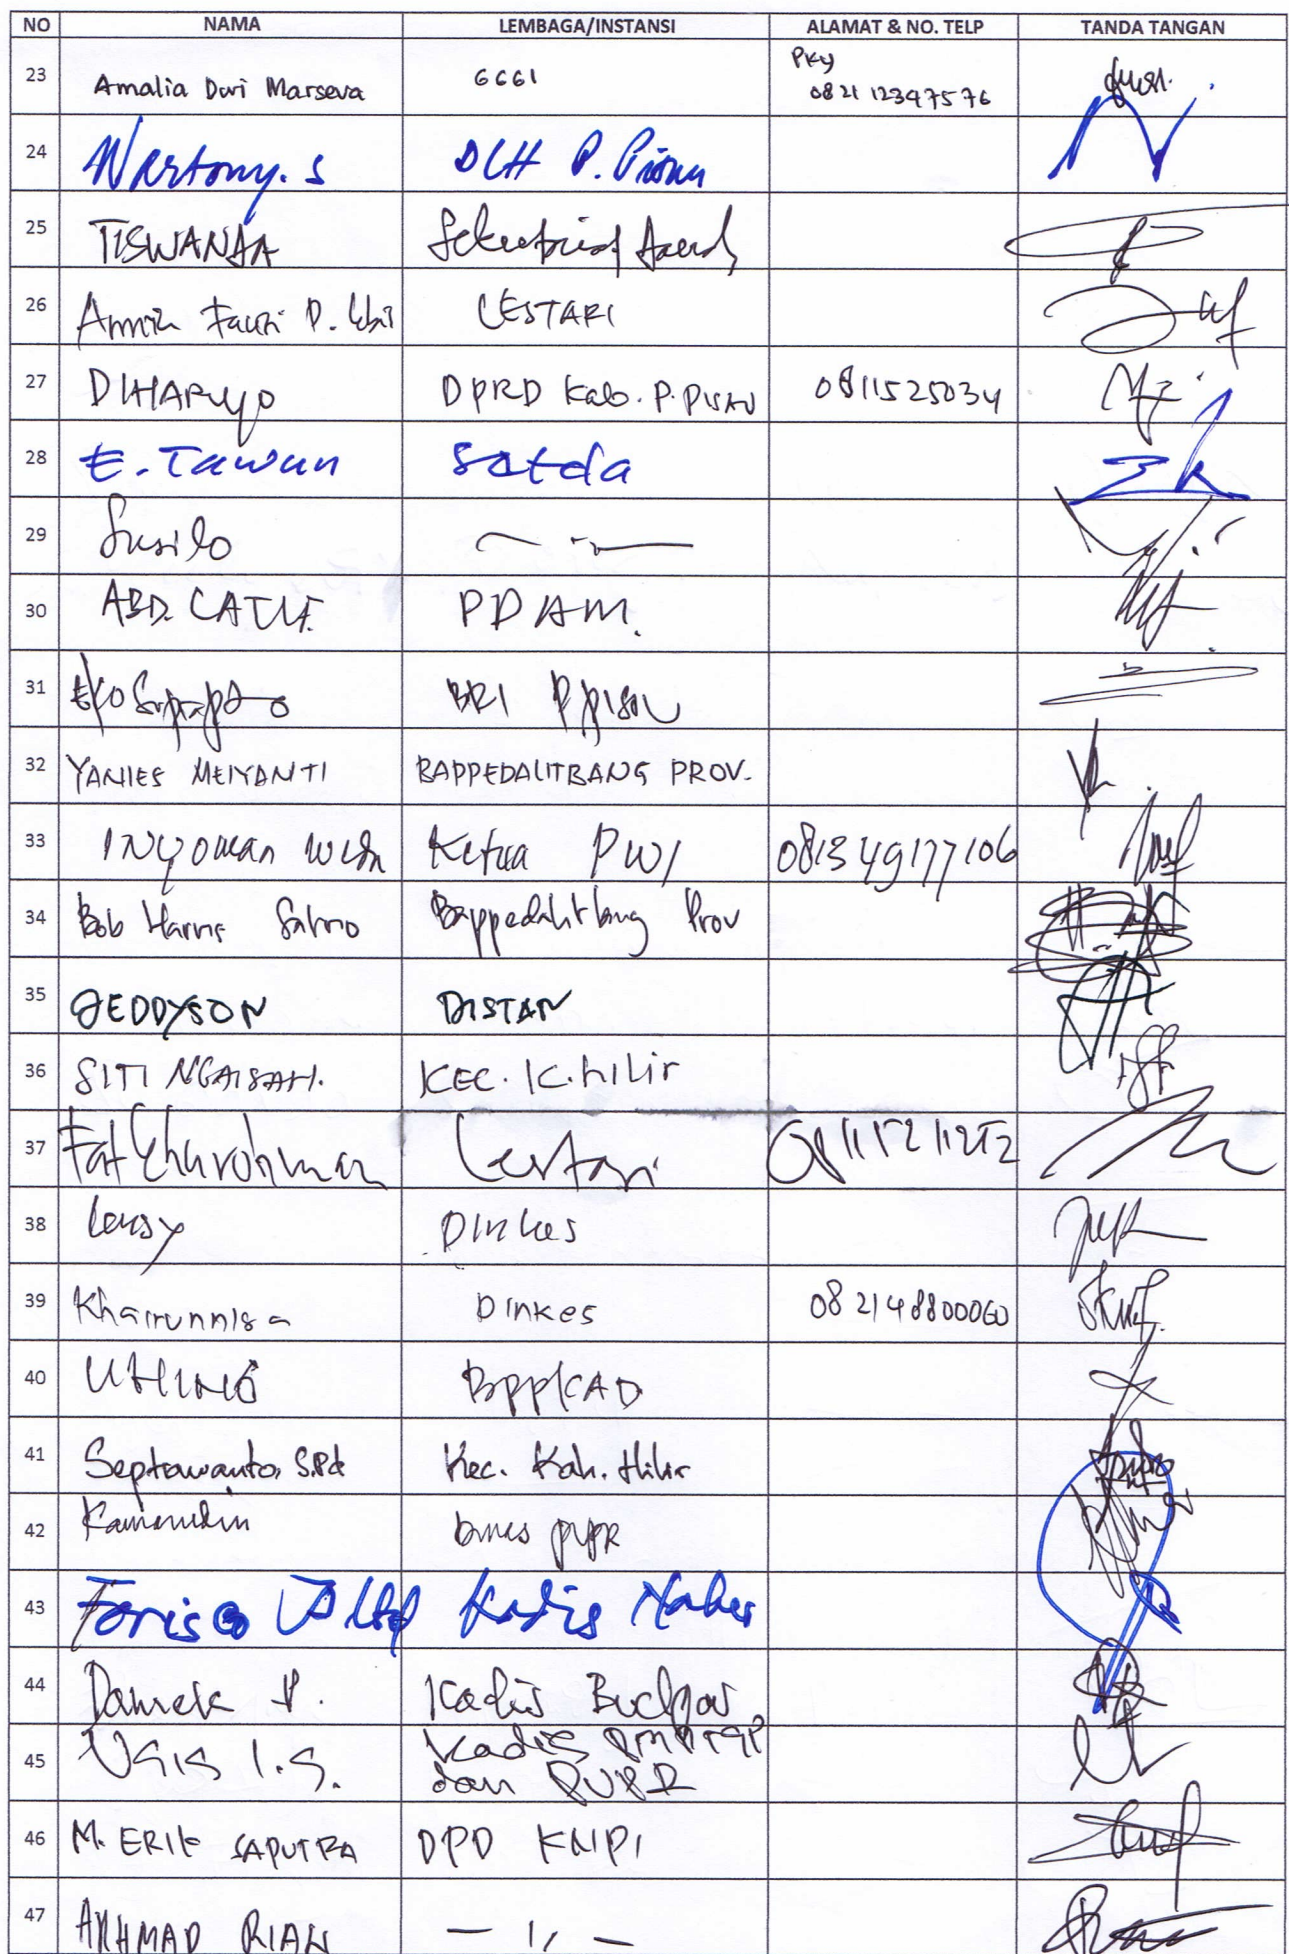 NO NAMA LEMBAGA/INSTANSI ALAMAT & NO. TELP TANDA TANGAN
23 Amalia Dwi Marseva GGGI Pky
082112347576
24 Wartony. S DLH P. Pisau
25 TISWANDA
26 Amin Fauzi P. LESTARI
27 DIHARyo DPRD Kab. P. PISAU 0811525034
28 E. Tawun Setda
29 Susilo — 〃 —
30 ABD. PDAM.
31 Eko Suprapto BRI P pisau
32 YANIES MEIYANTI BAPPEDALITBANG PROV.
33 I Nyoman Ketua PWI 081349177106
34 Bob Harris Bappedalitbang Prov
35 JEDDYSON DISTAN
36 SITI NGAISAH. KEC. K. hilir
37 Fatkhurohman Lestari 08115211252
38 Leusy Dinkes
39 Khairunnisa Dinkes 082148800060
40 BPPKAD
41 Septawanto, S.Pd Kec. Kah. Hilir
42 Kamarudin Dinas PUPR
43 Kadis
44 P. Kadis Budpar
45 USIS I. S. Kadis
dan PUPR
46 M. ERIK SAPUTRA DPD KNPI
47 AKHMAD RIAN — 〃 —